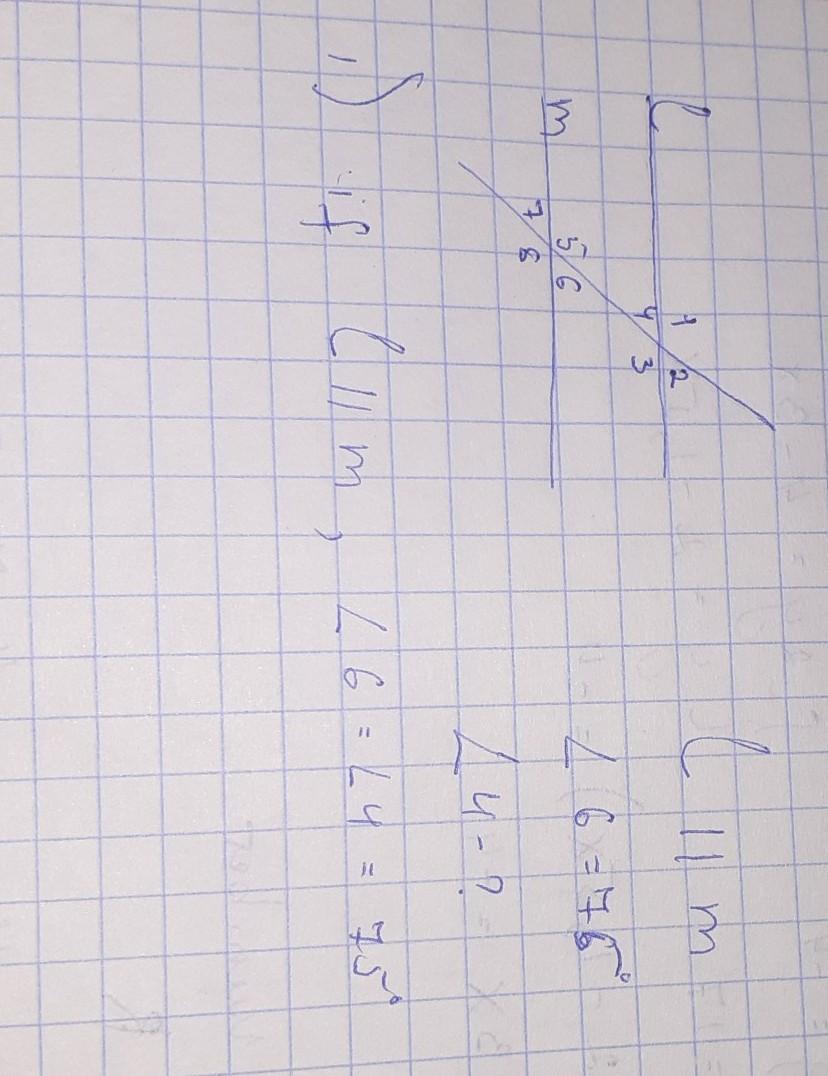 l 1 2
4 3
m 5 6
7 8
l || m
∠6 = 75°
∠4 - ?
1) l || m, ∠6 = ∠4 = 75°